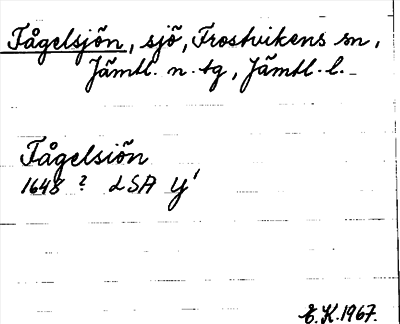 Fågelsjön, sjö, Frostvikens sn,
Jämtl. n. tg, Jämtl. l.
Fågelsiön
1648 ? LSA Y'
E.K. 1967.